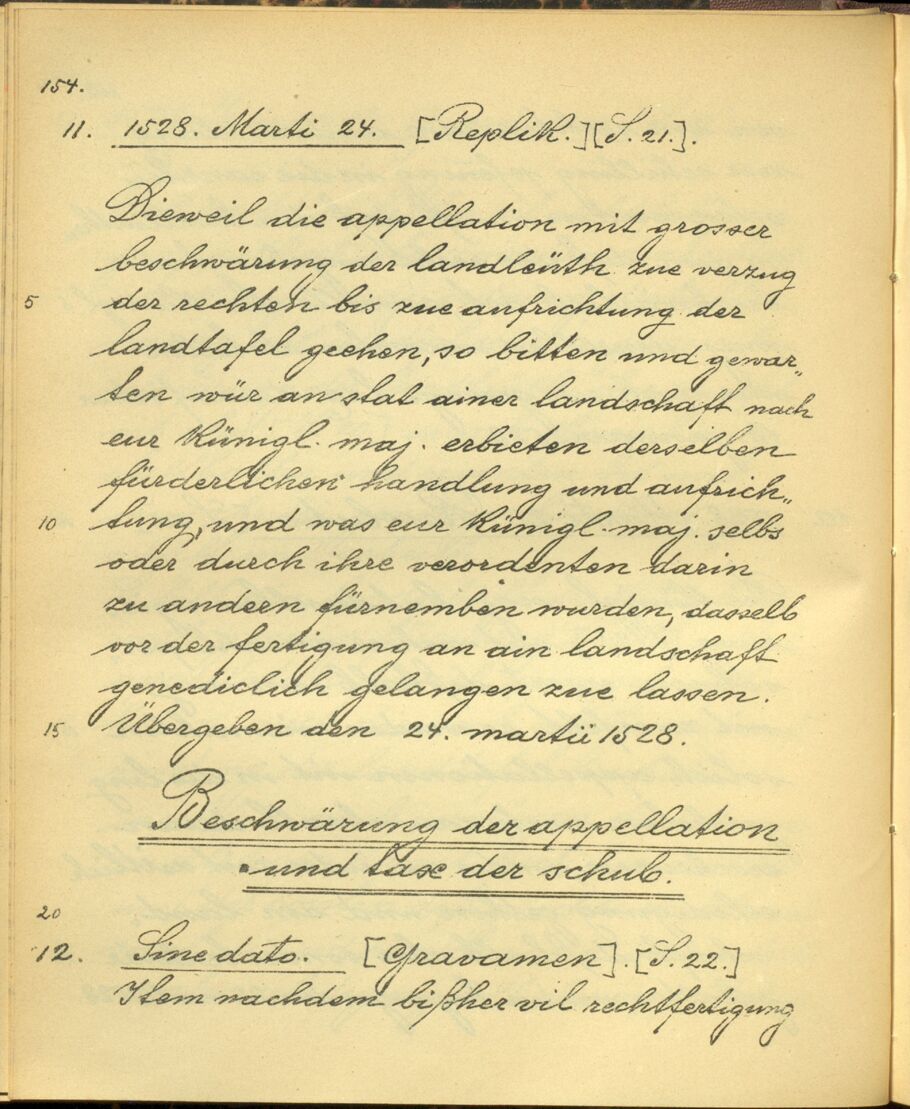 154.
11. 1528. Marti 24. [Replik.][S. 21.].
Dieweil die appellation mit grosser
beschwärung der landleüth zue verzug
5 der rechten bis zue aufrichtung der
landtafel geehen, so bitten und gewar„
ten wür an stat ainer landschaft nach
eur künigl. maj. erbieten derselben
fürderlichen handlung und aufrich„
10 tung, und was eur künigl. maj. selbs
oder durch ihre verordenten darin
zu andern fürnemben wurden, dasselb
vor der fertigung an ain landschaft
genediclich gelangen zue lassen.
15 Übergeben den 24. martii 1528.
Beschwärung der appellation
und tax der schub.
20
12. Sine dato. [Gravamen]. [S. 22.]
Item nachdem bißher vil rechtfertigung